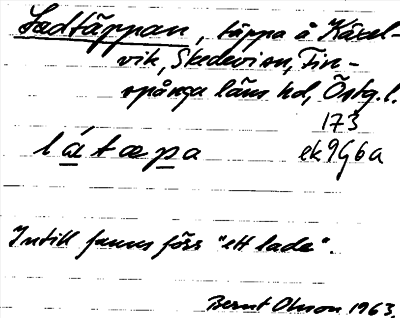 Ladtäppan, täppa å Käxel-
vik, Skedevi sn, Fin-
spånga läns hd, Östg.l.
173
látæpa ek 9G6a
Intill fanns förr "ett lada".
Bernt Olsson 1963.